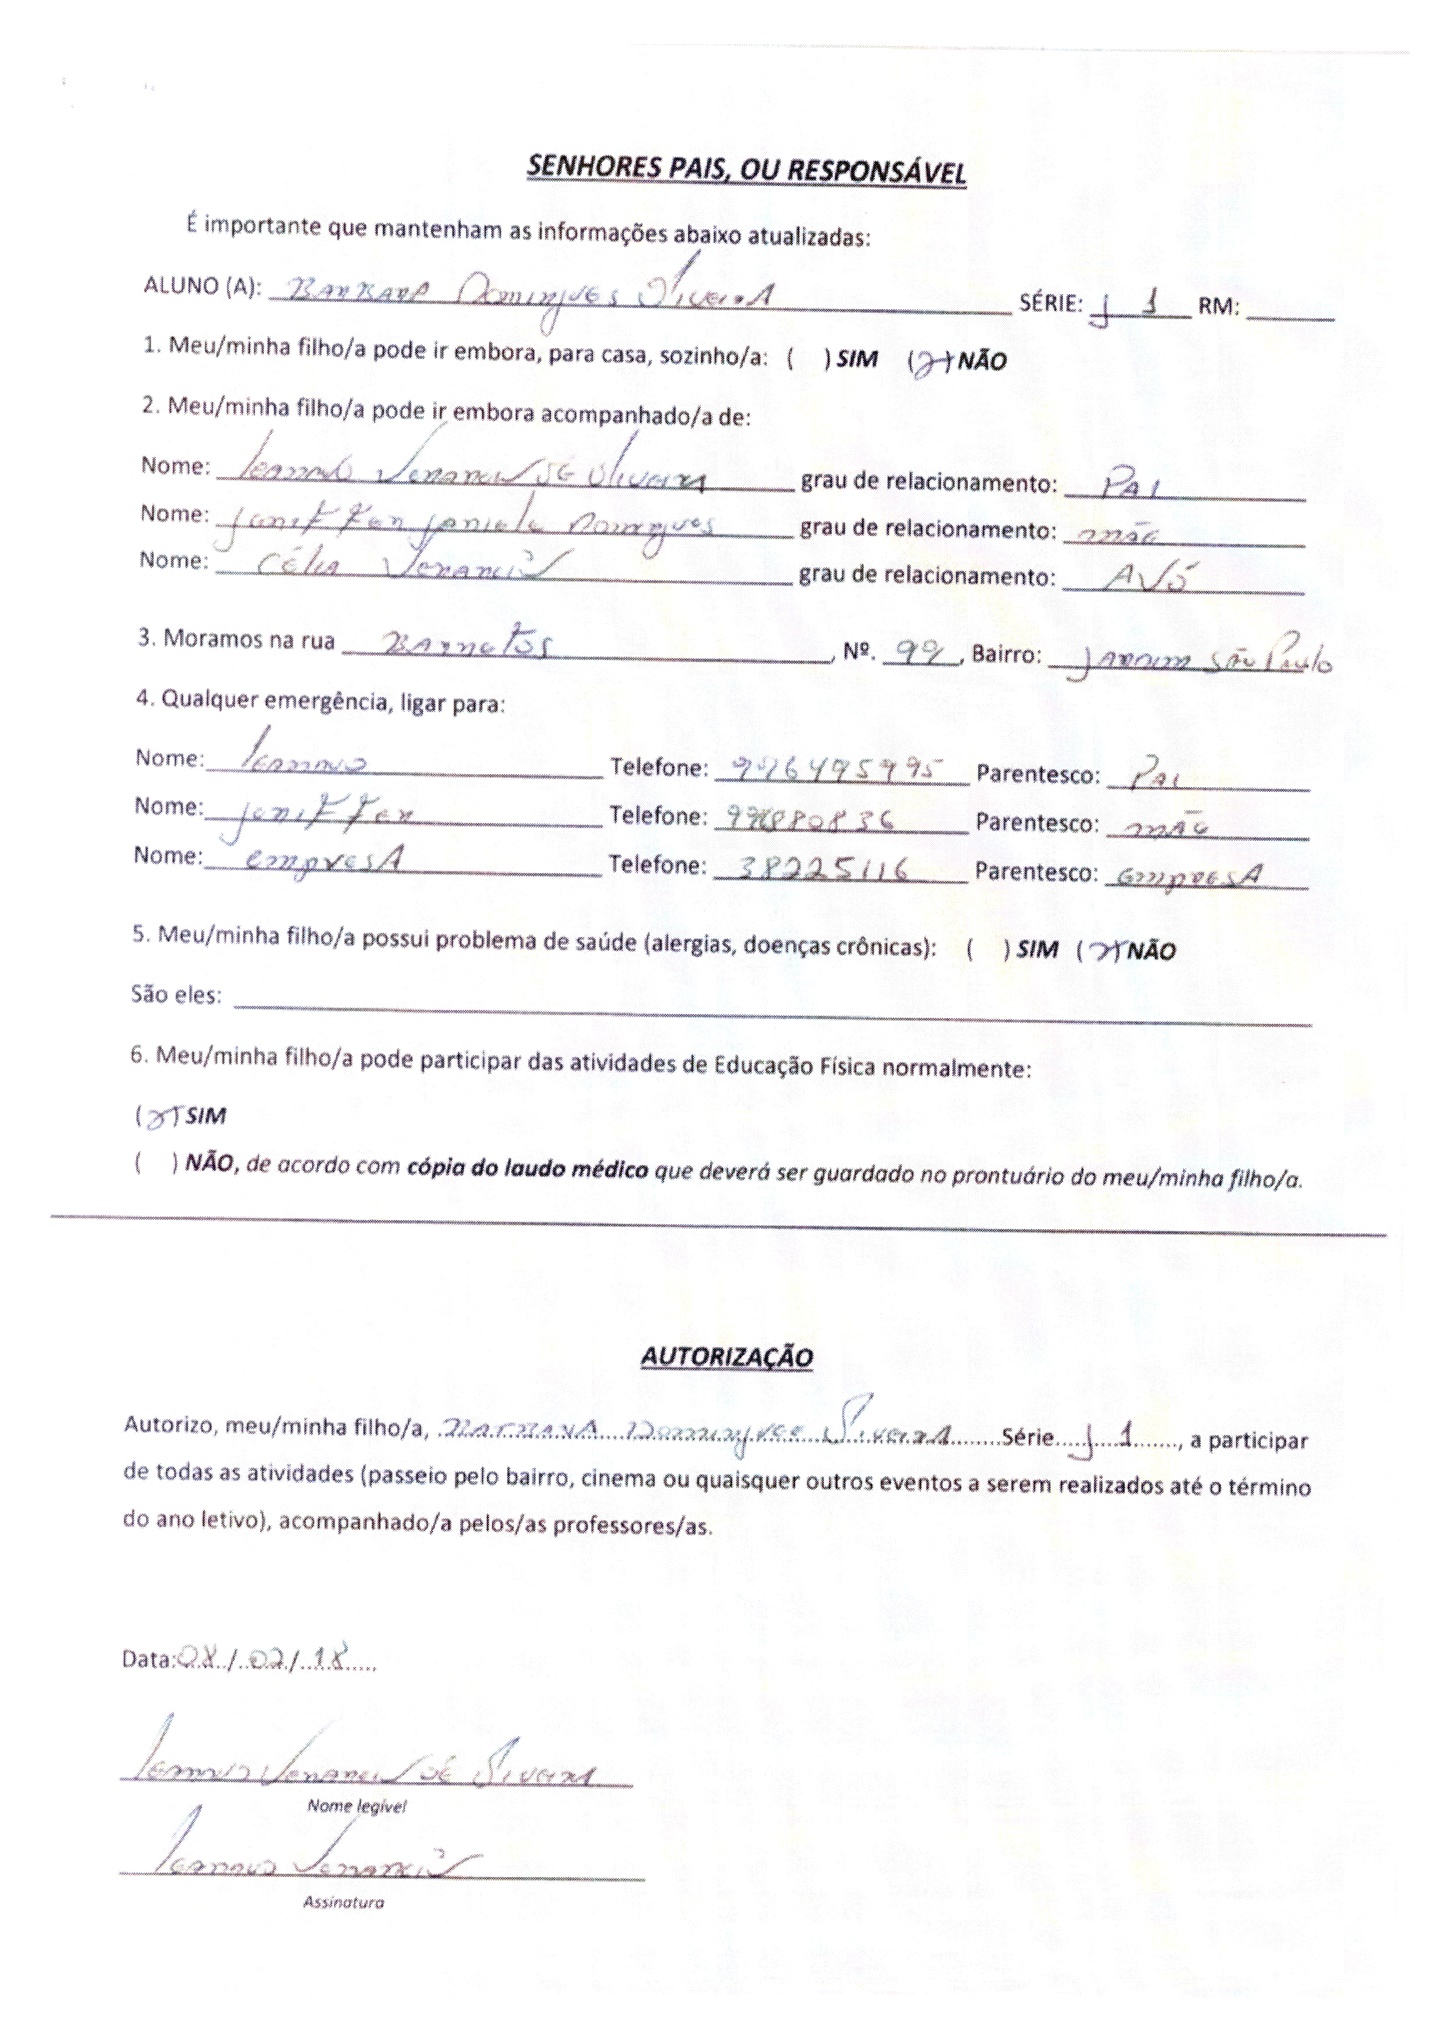 SENHORES PAIS, OU RESPONSÁVEL
É importante que mantenham as informações abaixo atualizadas:
ALUNO (A): BARBARA Domingues Oliveira SÉRIE: J 1 RM: ______
1. Meu/minha filho/a pode ir embora, para casa, sozinho/a: ( ) SIM (x) NÃO
2. Meu/minha filho/a pode ir embora acompanhado/a de:
Nome: Leandro Venancio de Oliveira grau de relacionamento: PAI
Nome: Jeniffer Daniela Domingues grau de relacionamento: mãe
Nome: Célia Venancio grau de relacionamento: AVÓ
3. Moramos na rua Barretos, Nº. 99, Bairro: Jardim São Paulo
4. Qualquer emergência, ligar para:
Nome: Leandro Telefone: Parentesco: PAI
Nome: Jeniffer Telefone: Parentesco: mãe
Nome: empresA Telefone: 38225116 Parentesco: empresA
5. Meu/minha filho/a possui problema de saúde (alergias, doenças crônicas): ( ) SIM (x) NÃO
São eles: ______
6. Meu/minha filho/a pode participar das atividades de Educação Física normalmente:
(x) SIM
( ) NÃO, de acordo com cópia do laudo médico que deverá ser guardado no prontuário do meu/minha filho/a.
AUTORIZAÇÃO
Autorizo, meu/minha filho/a, BARBARA Domingues Oliveira Série J 1, a participar
de todas as atividades (passeio pelo bairro, cinema ou quaisquer outros eventos a serem realizados até o término
do ano letivo), acompanhado/a pelos/as professores/as.
Data: 08/02/18
Leandro Venancio de Oliveira
Nome legível
Leandro Venancio
Assinatura